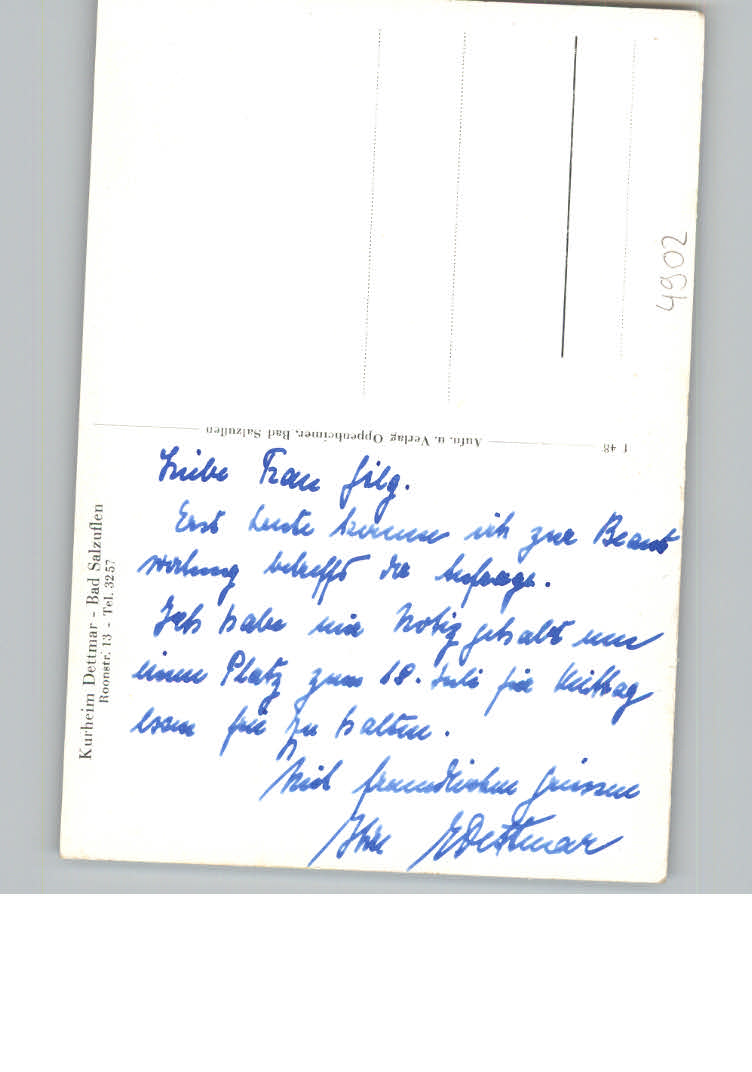 Kurheim Dettmar - Bad Salzuflen
Roonstr. 13 - Tel. 3257
Aufn. u. Verlag Oppenheimer, Bad Salzuflen
f 48
4902
Liebe Frau Gilg.
Erst heute komme ich zur Beant
wortung betrefft die Anfrage.
Ich habe mir Notiz gehabt um
einen Platz zum 18. Juli für Mittag
essen frei zu halten.
Mit freundlichen Grüssen
Ihre EDettmar